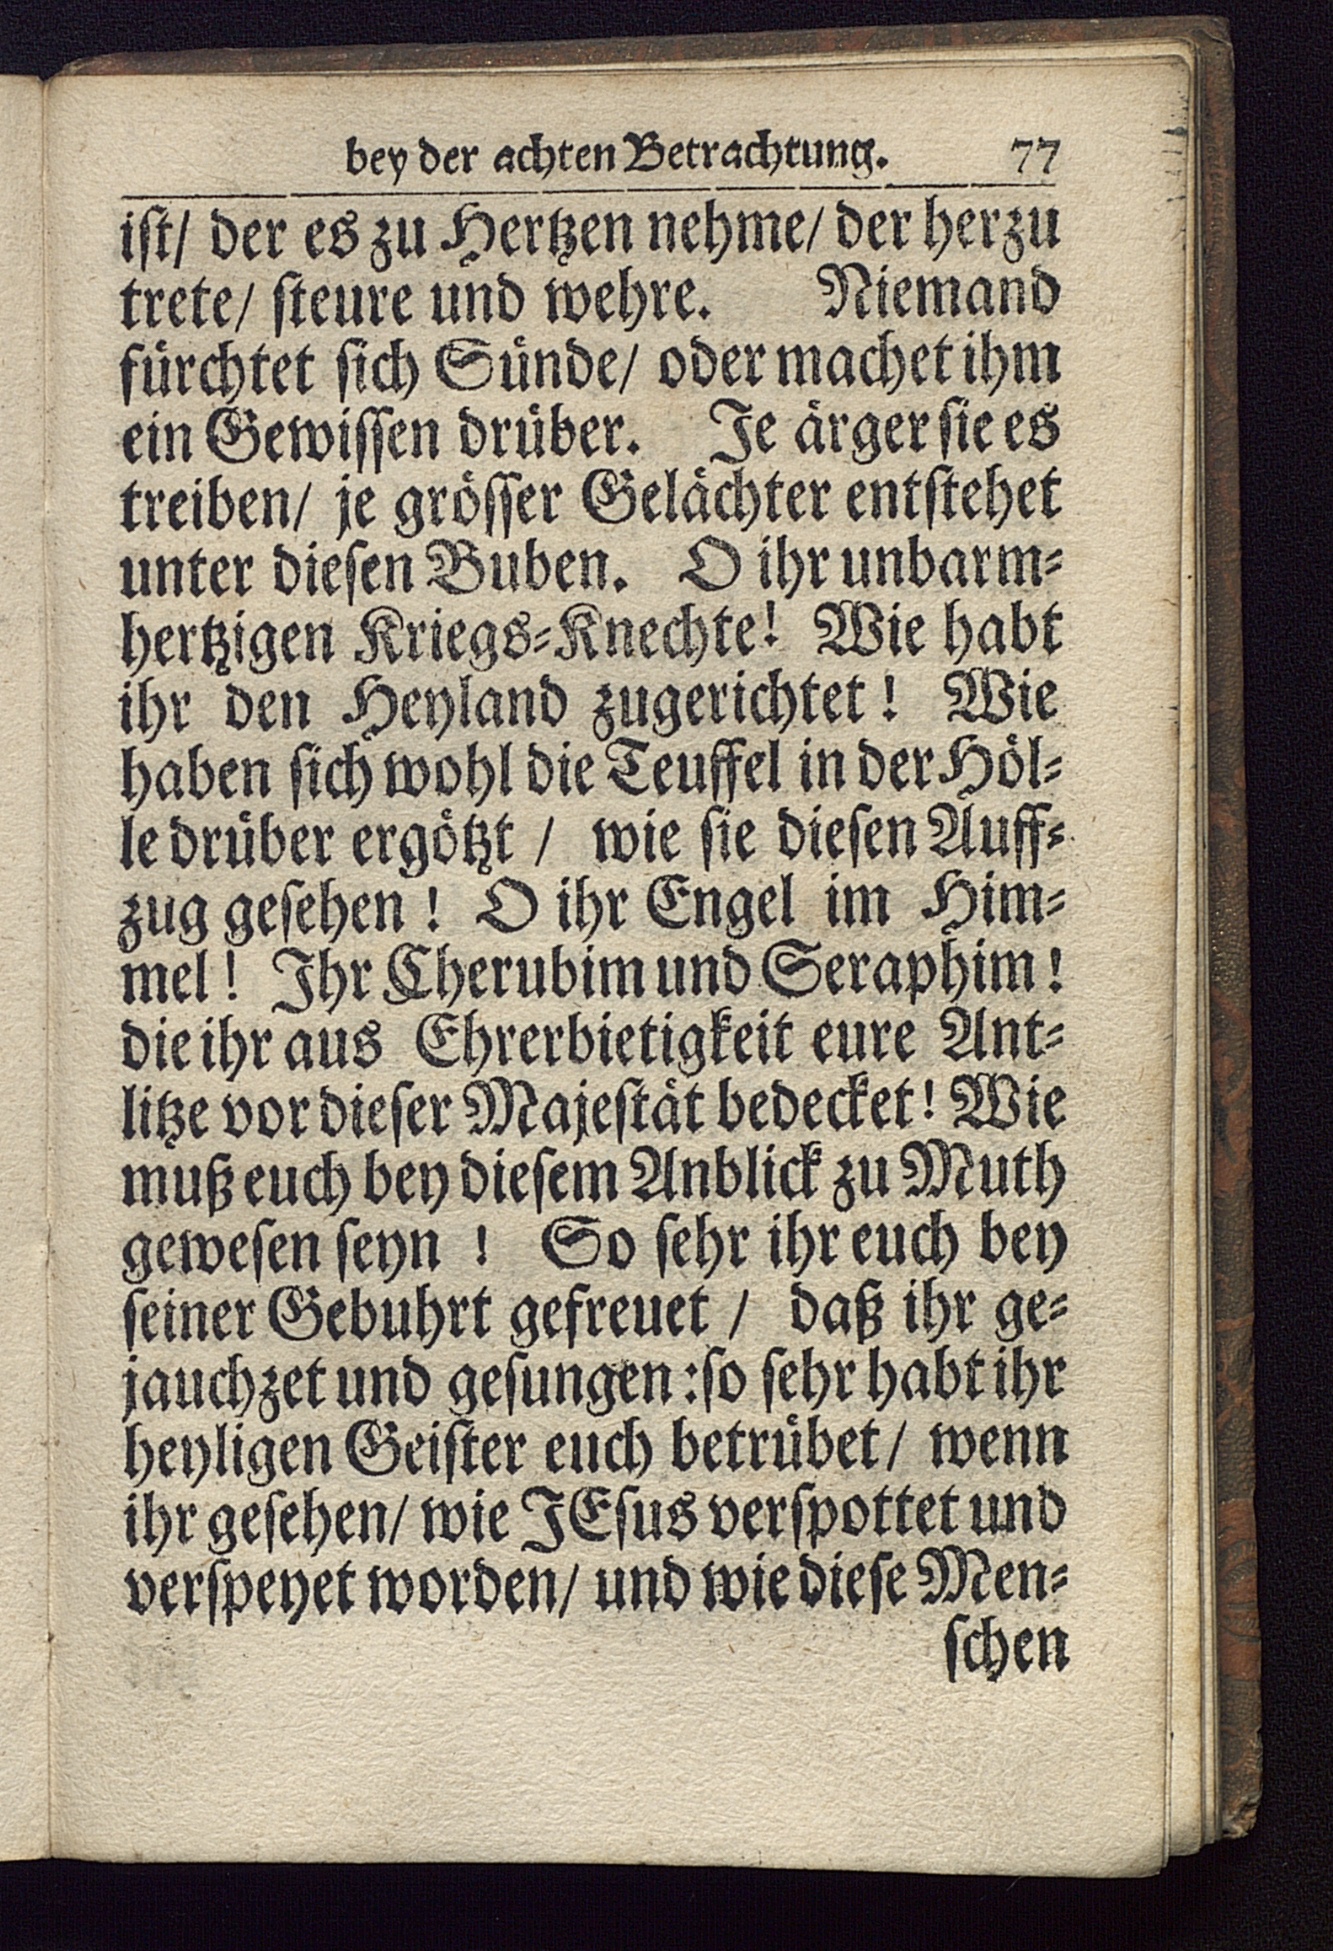 bey der achten Betrachtung. 77
ist/ der es zu Hertzen nehme/ der herzu
trete/ steure und wehre. Niemand
fürchtet sich Sünde/ oder machet ihm
ein Gewissen drüber. Je ärger sie es
treiben/ je grösser Gelächter entstehet
unter diesen Buben. O ihr unbarm-
hertzigen Kriegs-Knechte! Wie habt
ihr den Heyland zugerichtet! Wie
haben sich wohl die Teuffel in der Höl-
le drüber ergötzt / wie sie diesen Auff-
zug gesehen! O ihr Engel im Him-
mel! Ihr Cherubim und Seraphim!
die ihr aus Ehrerbietigkeit eure Ant-
litze vor dieser Majestät bedecket! Wie
muß euch bey diesem Anblick zu Muth
gewesen seyn ! So sehr ihr euch bey
seiner Gebuhrt gefreuet / daß ihr ge-
jauchzet und gesungen: so sehr habt ihr
heyligen Geister euch betrübet/ wenn
ihr gesehen/ wie JEsus verspottet und
verspeyet worden/ und wie diese Men-
schen